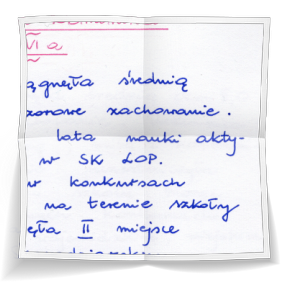 VI a
ągnęła średnią
zorowe zachowanie.
lata nauki akty-
w SK LOP.
w konkursach
na terenie szkoły
ęła II miejsce